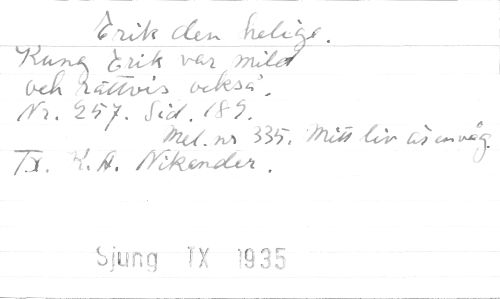 Erik den helige.
Kung Erik var mild
och rättvis också.
Nr. 257. Sid. 189.
Mel. nr 335. Mitt liv är en våg.
Tx. K.A. Nikander.
Sjung TX 1935